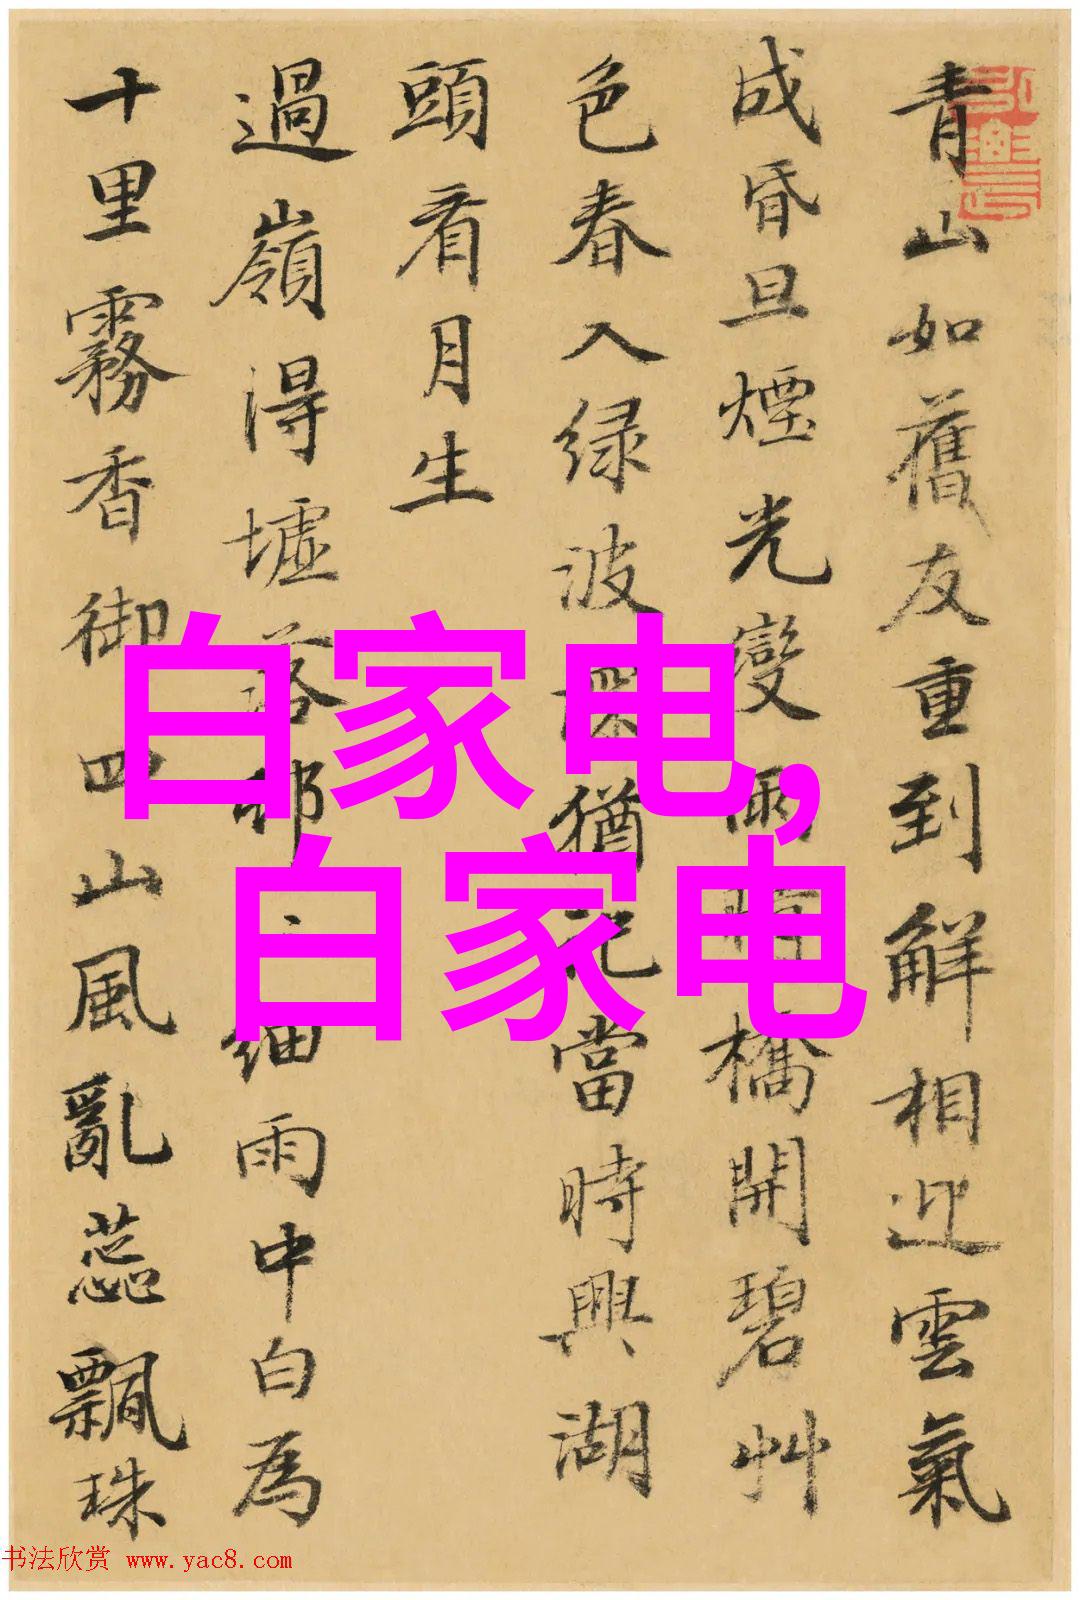 青山如舊友重到解相迎雲氣
成昏旦煙光變雨晴橋開碧艸
色春入绿波猶記當時興湖
頭看月生
過嶺得墟落邨細雨中白為
十里霧香御四山風亂蕊飄珠
白家电,
白家电
书法欣赏 www.yac8.com